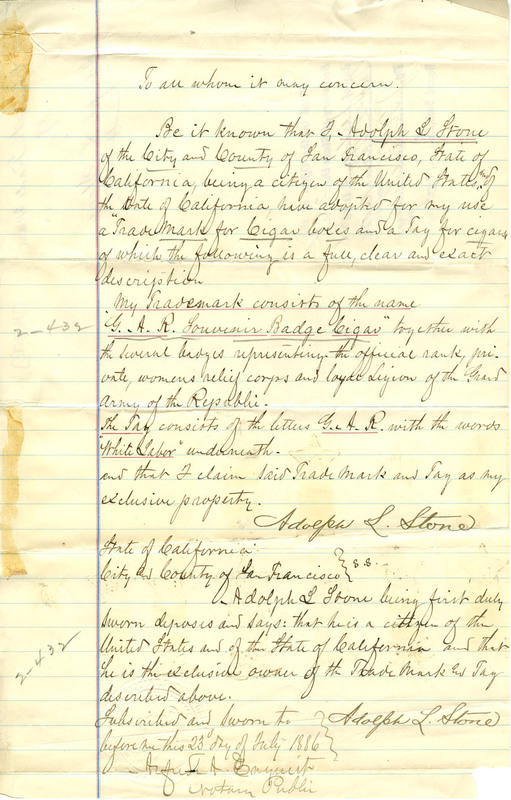 To all whom it may concern.
Be it known that I, Adolph L Stone
of the City and County of San Francisco, State of
California, being a citizen of the United States, & of
the State of California have adopted for my use
a "Trade Mark for Cigar boxes and a Tag for cigars
of which the following is a full, clear and exact
description
My Trademark consists of the name
"G. A. R. Souvenir Badge Cigar" together with
the several badges representing the official rank, pri-
vate, womens relief corps and loyal Legion of the Grand
Army of the Republic.
The Tag consists of the letters G. A. R. with the words
"White Labor" underneath.
and that I claim said Trade Mark and Tag as my
exclusive property.
Adolph L. Stone
State of California
City & County of San Francisco } s.s.
Adolph L Stone being first duly
sworn deposes and says: that he is a citizen of the
United States and of the State of California and that
he is the exclusive owner of the Trade Mark & Tag
described above.
Subscribed and sworn to } Adolph L. Stone
before me this 23 day of July 1886
Notary Public
2-432
2-432